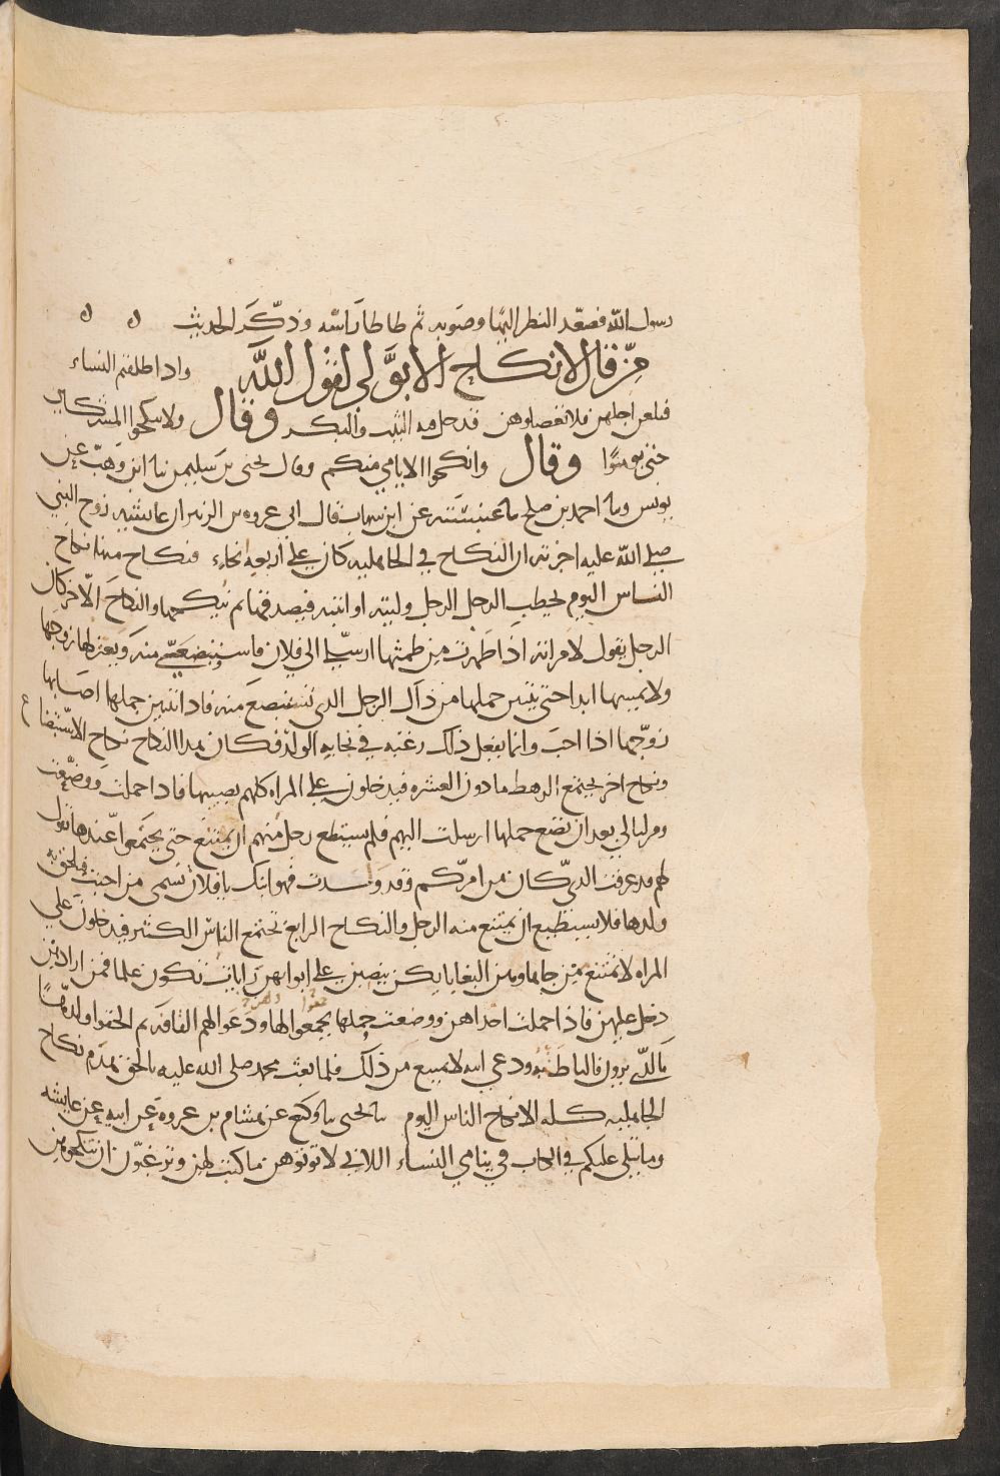 رسول الله فصعد النظر اليها وصوبه ثم طاطا راسه وذكر الحديث ه ه ه
من قال لا نكاح الا بولى لقول الله واذا طلقتم النساء
فبلغن اجلهن فلا تعضلوهن فدخل فيه الثيب والبكر وقال ولا تنكحوا المشركين
حتى يومنوا وقال وانكحوا الايامى منكم وقال يحيى بن سليمن نا ابن وهب عن
يونس ونا احمد بن صلح نا عنبسة عن ابن شهاب قال انى عروه بن الزبير ان عايشه زوج النبي
صلى الله عليه اخبرته ان النكاح في الجاهليه كان على اربعه انحاء فنكاح منها نكاح
الناس اليوم يخطب الرجل الى الرجل وليته او ابنته فيصدقها ثم ينكحها والنكاح الآخر كان
الرجل يقول لامراته اذا طهرت من طمثها ارسلي الى فلان فاستبضعي منه ويعتزلها زوجها
ولا يمسها ابدا حتى يتبين حملها من ذلك الرجل الذي تستبضع منه فاذا تبين حملها اصابها
زوجها اذا احب وانما يفعل ذلك رغبه في نجابه الولد فكان هذا النكاح نكاح الاستبضاع
ونكاح اخر يجتمع الرهط ما دون العشره فيدخلون على المراه كلهم يصيبها فاذا حملت ووضعت
ومر ليالي بعد ان تضع حملها ارسلت اليهم فلم يستطع رجل منهم ان يمتنع حتى يجتمعوا عندها تقول
لهم قد عرفت الذي كان من امركم وقد ولدت فهو ابنك يا فلان تسمي من احبت فيلحق به
ولدها فلا يستطيع ان يمتنع منه الرجل والنكاح الرابع يجتمع الناس الكثير فيدخلون على
المراه لا تمتنع ممن جاها وهن البغايا يكن ينصبن على ابوابهن رايات تكون علما فمن ارادهن
دخل عليهن فاذا حملت احداهن ووضعت حملها جمعوا لها ودعوا لهم القافه ثم الحقوا ولدها
بالذي يرون فالتاطته ودعي ابنه لا يمتنع من ذلك فلما بعث محمد صلى الله عليه بالحق هدم نكاح
الجاهليه كله الا نكاح الناس اليوم نا يحيى نا وكيع عن هشام بن عروه عن ابيه عن عايشه
وما يتلى عليكم في الكتاب في يتامى النساء اللاتي لا توتوهن ما كتب لهن وترغبون ان تنكحوهن